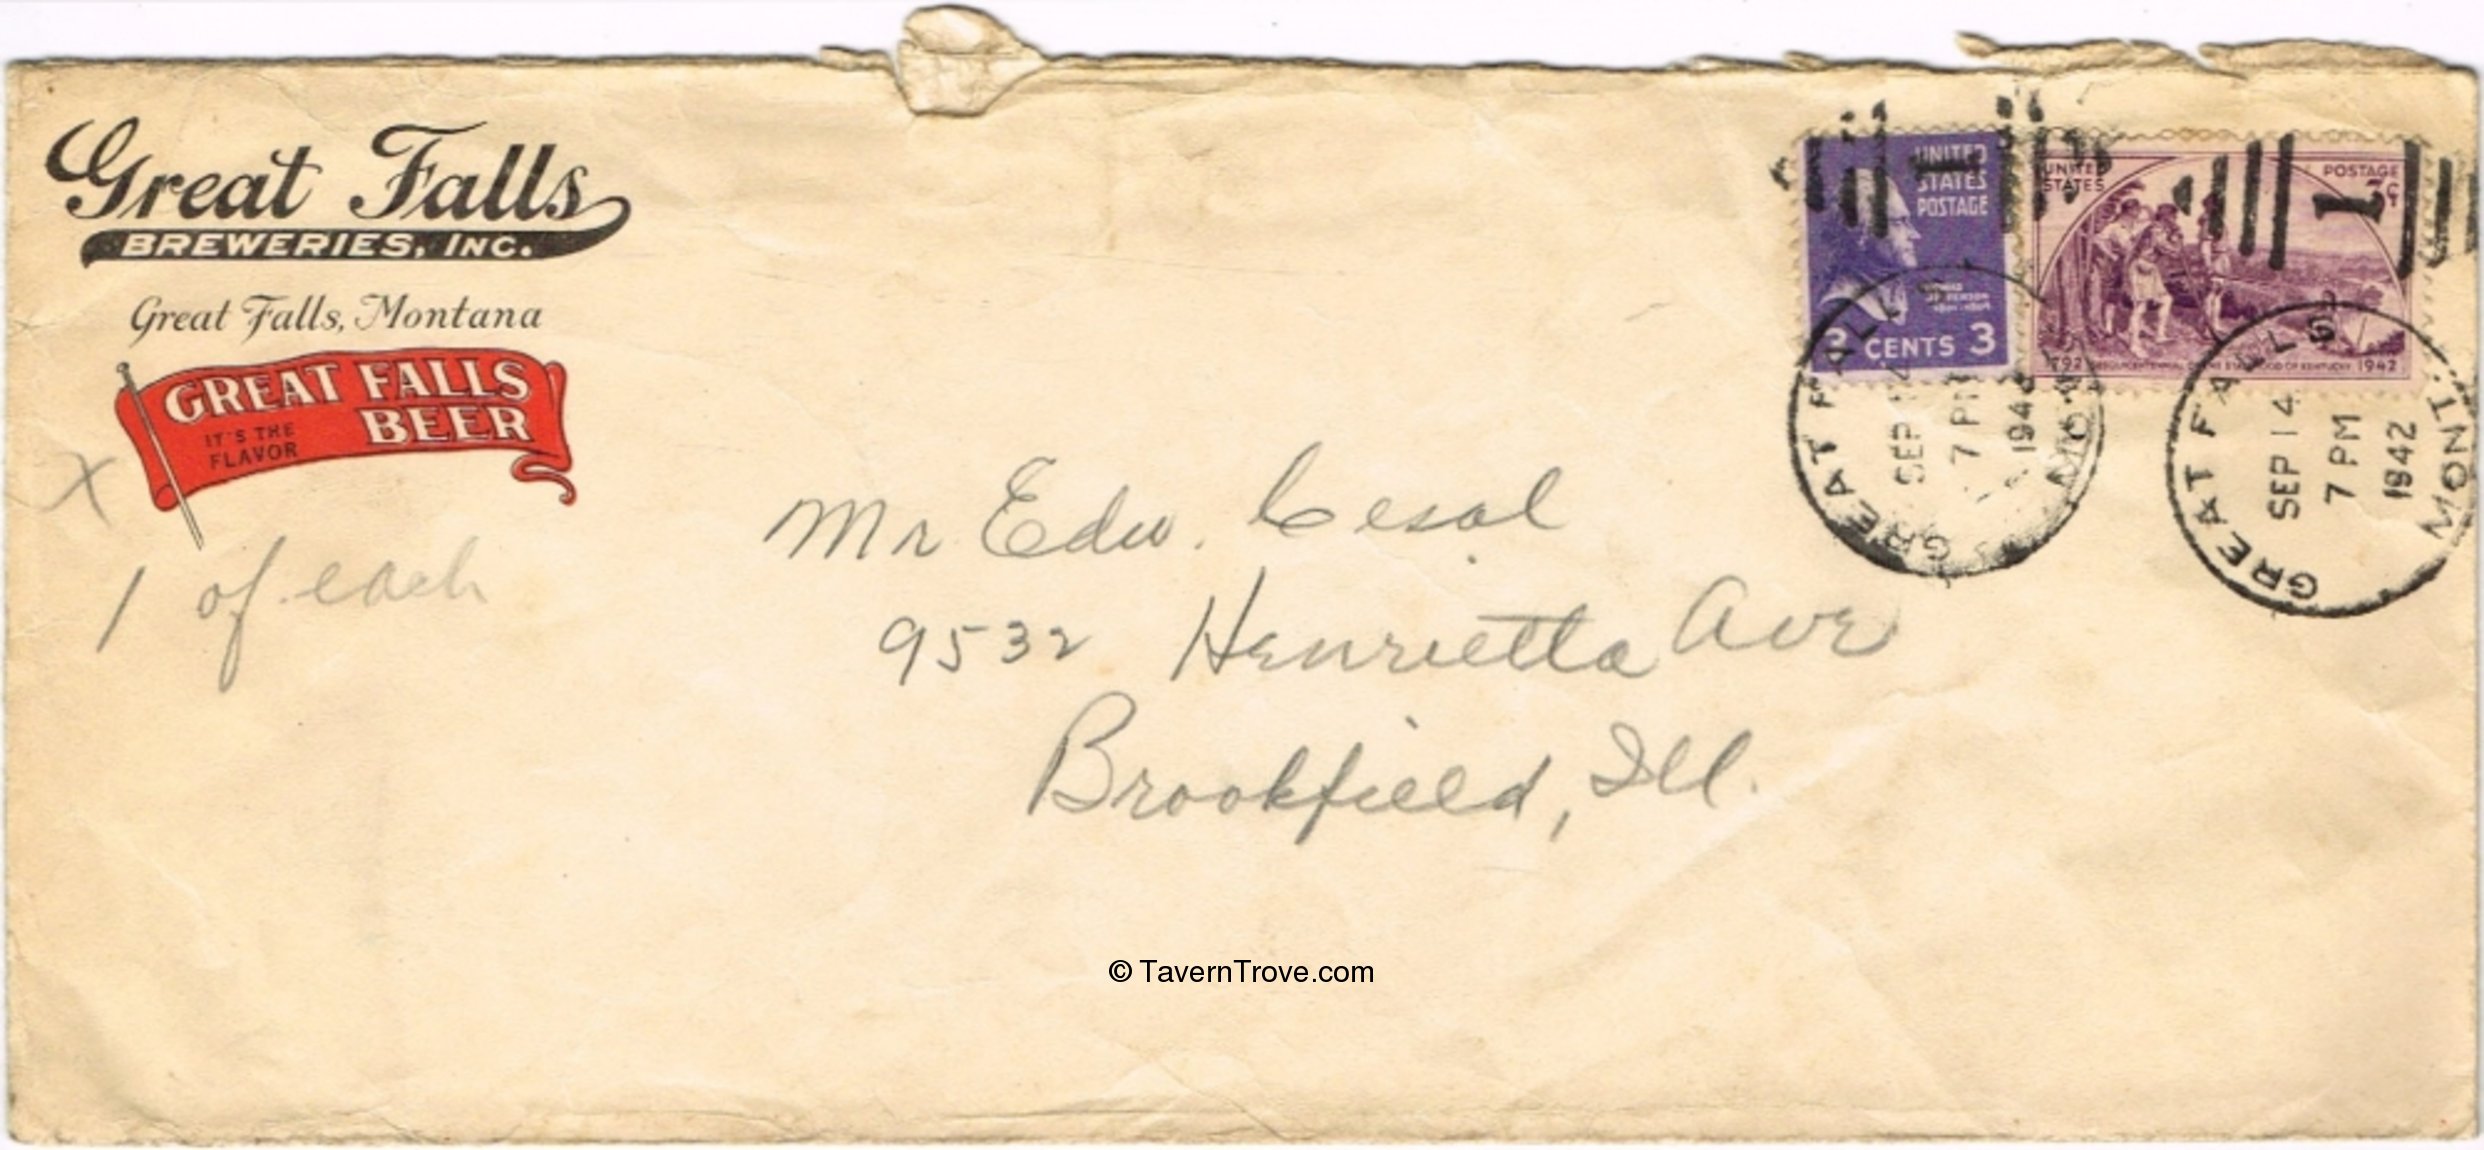 Great Falls
BREWERIES, INC.
Great Falls, Montana
GREAT FALLS
BEER
IT'S THE
FLAVOR
X
1 of each
Mr Edw. Cesal
9532 Henrietta Ave
Brookfield, Ill.
UNITED
STATES
POSTAGE
3 CENTS 3
UNITED
STATES
POSTAGE
3¢
1792
STATEHOOD OF KENTUCKY 1942
GREAT FALLS
SEP 14
7 PM
194
MO
GREAT FALLS
SEP 14
7 PM
1942
MONT.
© TavernTrove.com